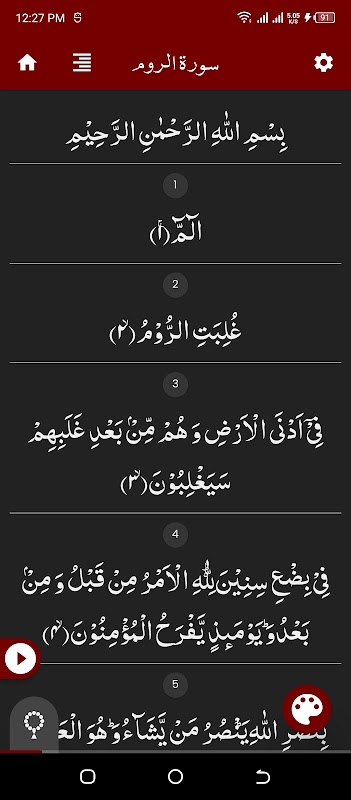 12:27 PM
5.05 K/S 91
سورة الروم
بِسْمِ اللّٰهِ الرَّحْمٰنِ الرَّحِيْمِ
1
الٓمّٓ ۚ﴿۱﴾
2
غُلِبَتِ الرُّوْمُ ۙ﴿۲﴾
3
فِيْۤ اَدْنَى الْاَرْضِ وَ هُمْ مِّنْۢ بَعْدِ غَلَبِهِمْ
سَيَغْلِبُوْنَ ۙ﴿۳﴾
4
فِيْ بِضْعِ سِنِيْنَ ؕ لِلّٰهِ الْاَمْرُ مِنْ قَبْلُ وَ مِنْۢ
بَعْدُ ؕ وَ يَوْمَىِٕذٍ يَّفْرَحُ الْمُؤْمِنُوْنَ ۙ﴿۴﴾
5
بِنَصْرِ اللّٰهِ ؕ يَنْصُرُ مَنْ يَّشَآءُ ؕ وَ هُوَ